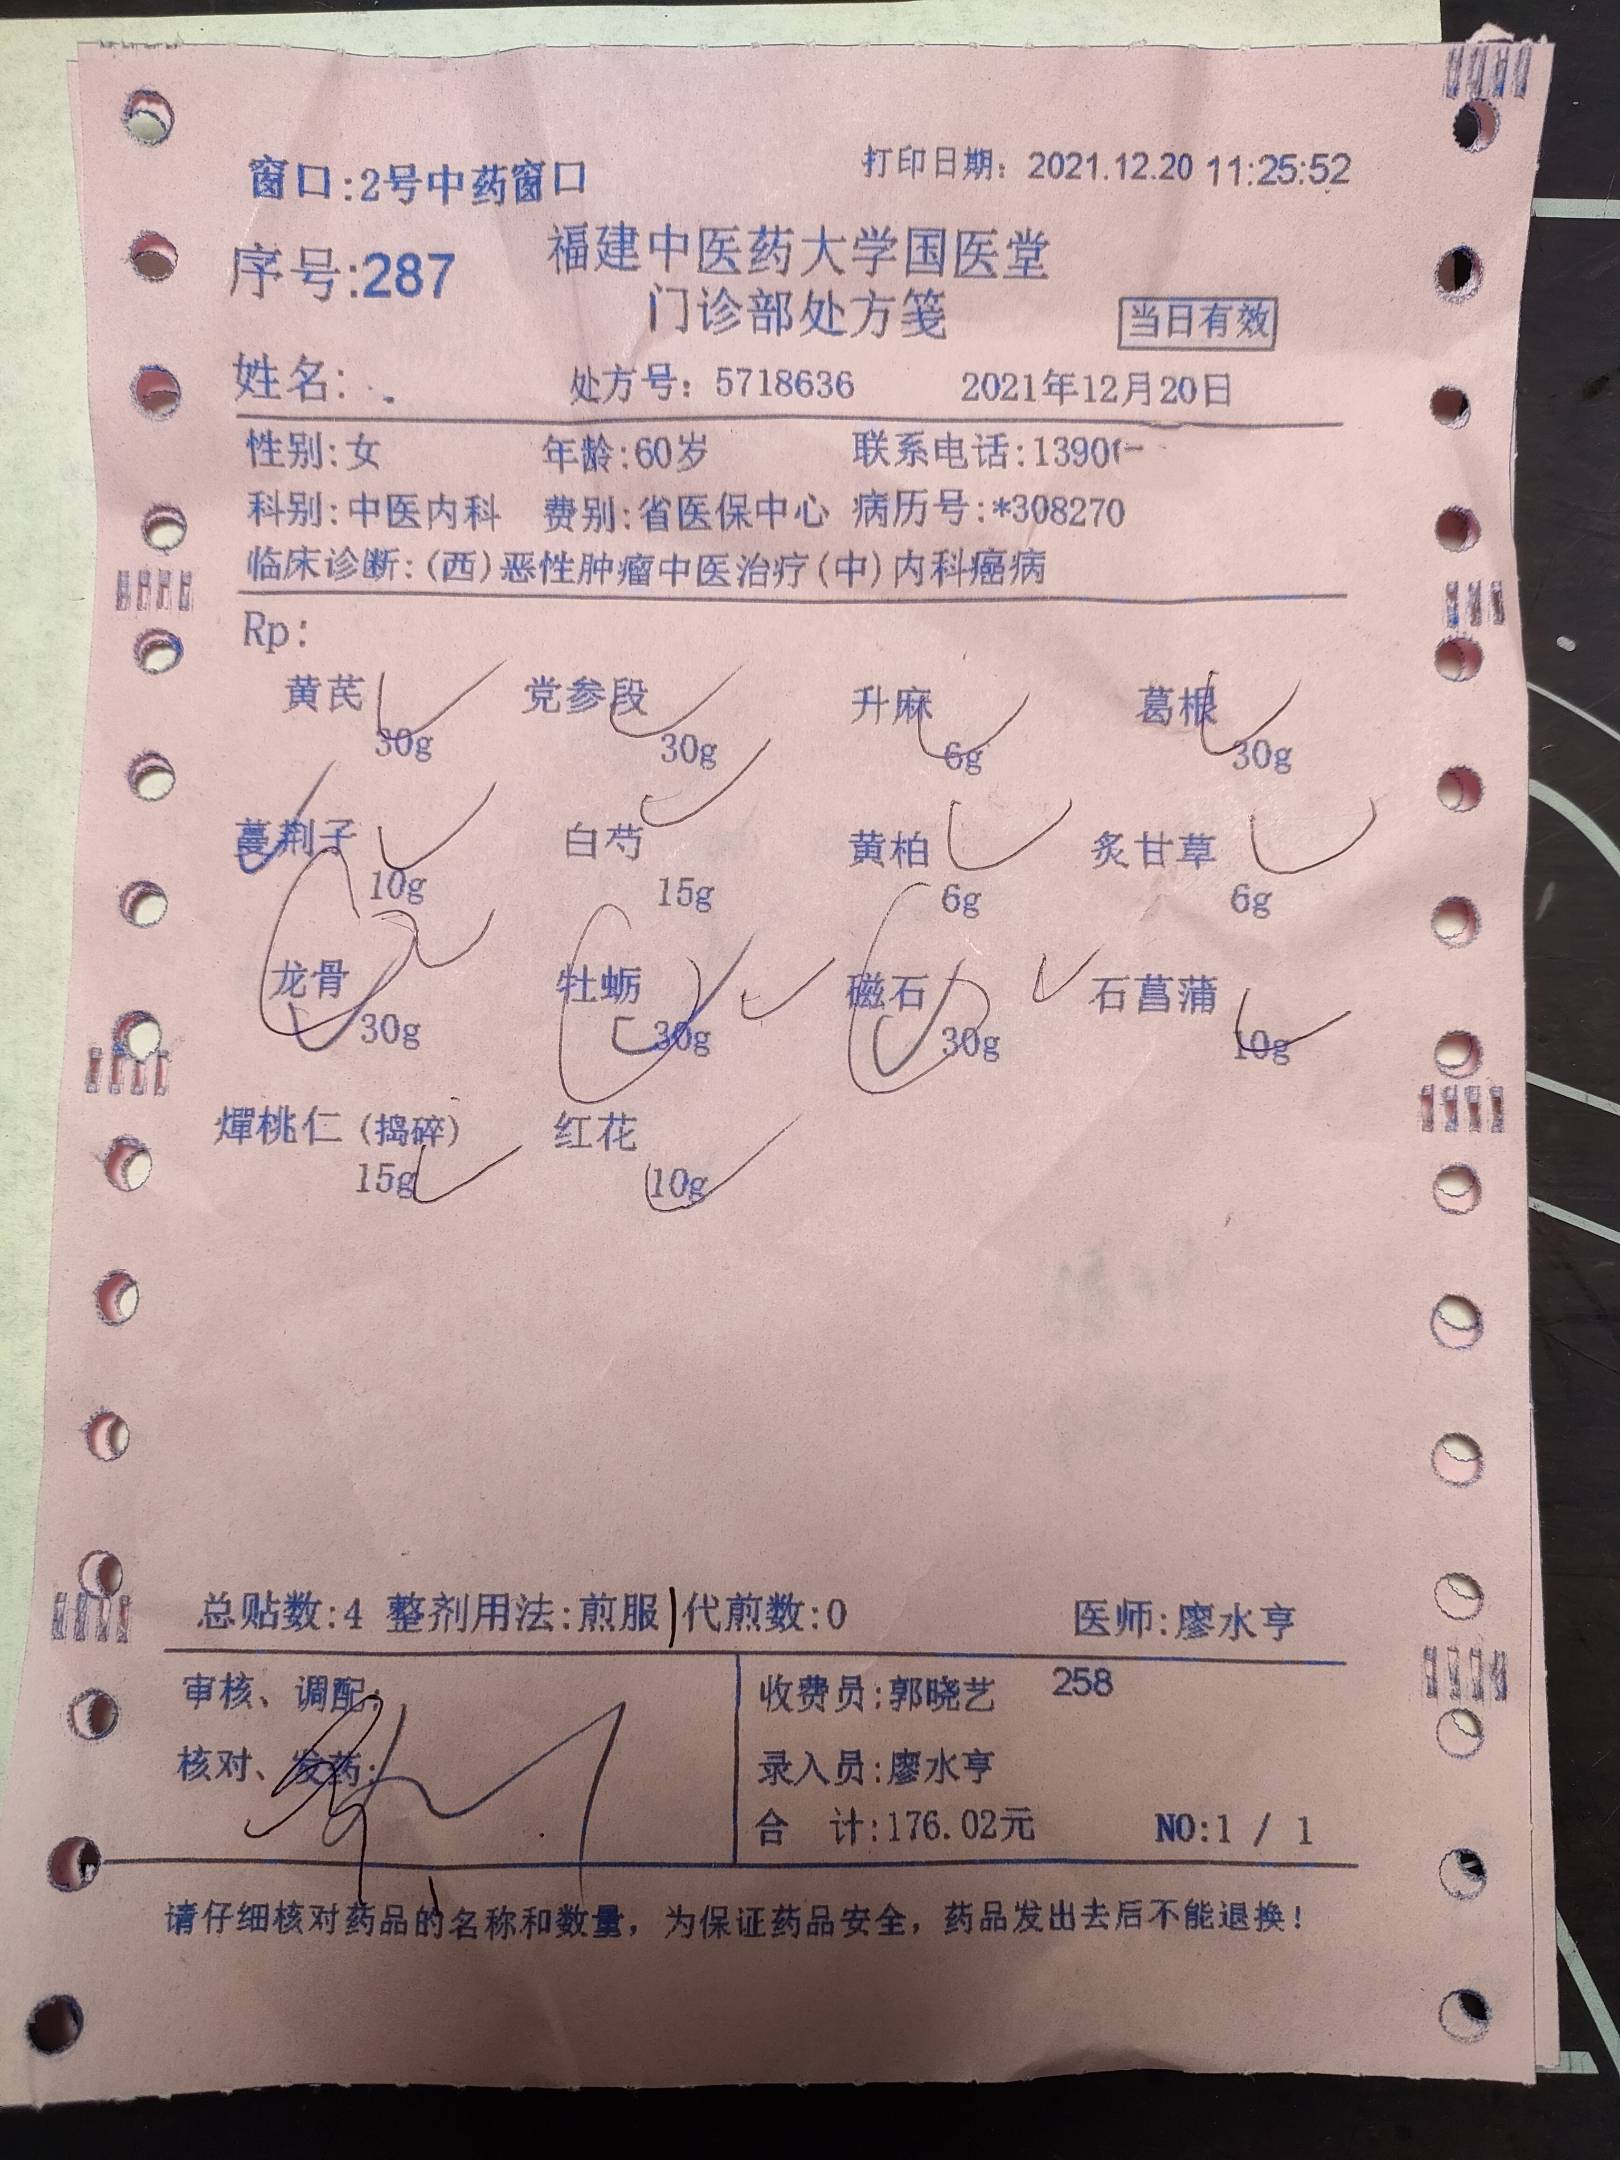 窗口:2号中药窗口 打印日期: 2021.12.20 11:25:52
序号:287 福建中医药大学国医堂
门诊部处方笺 当日有效
姓名: 处方号: 5718636 2021年12月20日
性别:女 年龄:60岁 联系电话:1390
科别:中医内科 费别:省医保中心 病历号:*308270
临床诊断:(西)恶性肿瘤中医治疗(中)内科癌病
Rp:
黄芪 党参段 升麻 葛根
30g 30g 6g 30g
蔓荆子 白芍 黄柏 炙甘草
10g 15g 6g 6g
龙骨 牡蛎 磁石 石菖蒲
30g 30g 30g 10g
燀桃仁(捣碎) 红花
15g 10g
总贴数:4 整剂用法:煎服 代煎数:0 医师:廖水亨
审核、调配: 收费员:郭晓艺 258
核对、发药: 录入员:廖水亨
合 计:176.02元 NO:1 / 1
请仔细核对药品的名称和数量，为保证药品安全，药品发出去后不能退换！